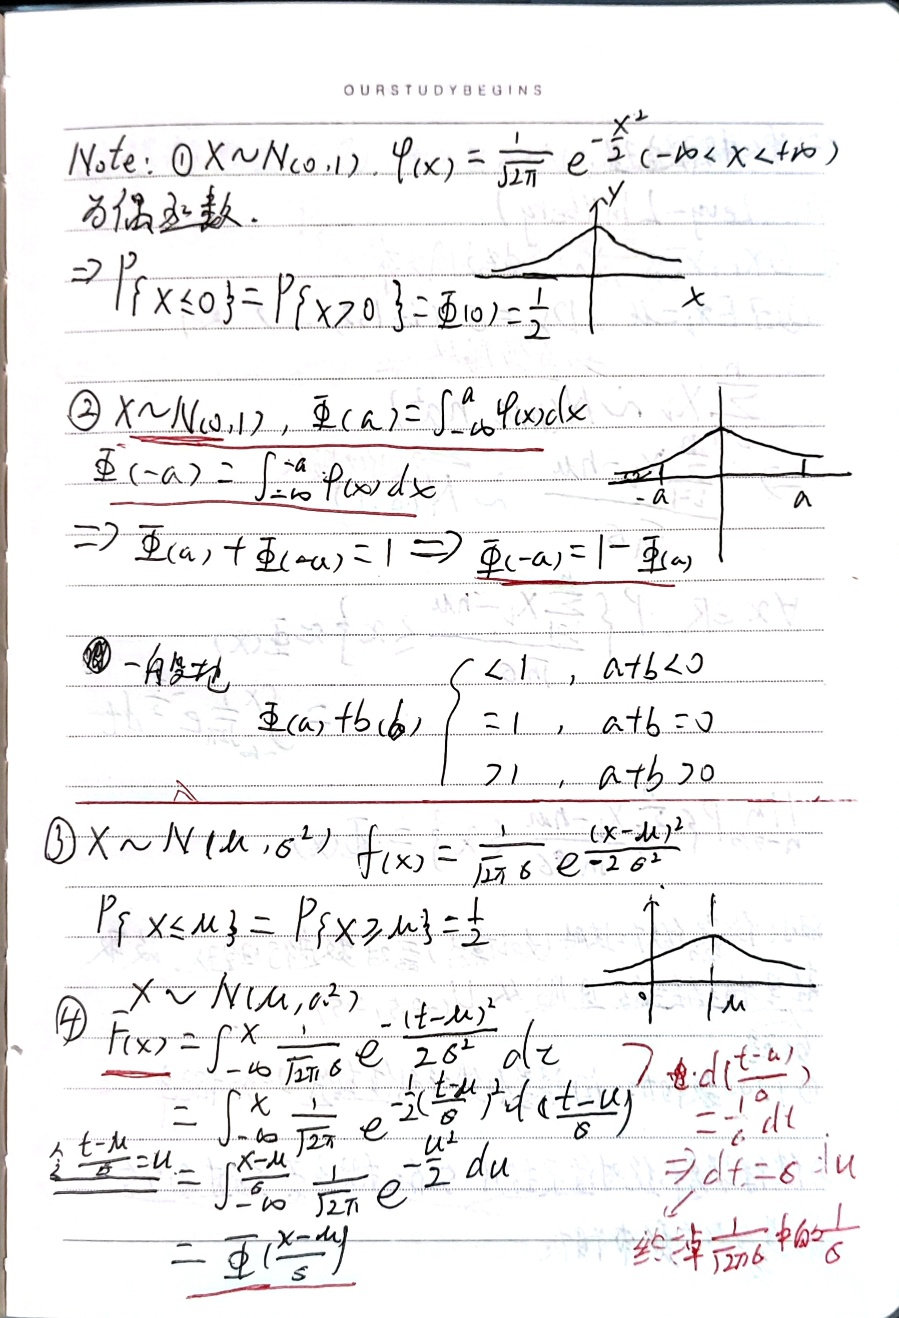 OURSTUDYBEGINS
Note: ① X～N(0,1). φ(x) = 1/√2π e^(-x²/2) (-∞<x<+∞)
为偶函数.
y
⇒ P{X≤0} = P{X>0} = Φ(0) = 1/2
x
② X～N(0,1), Φ(a) = ∫_{-∞}^{a} φ(x)dx
Φ(-a) = ∫_{-∞}^{-a} φ(x)dx
-a a
⇒ Φ(a) + Φ(-a) = 1 ⇒ Φ(-a) = 1 - Φ(a)
一般地
<1 , a+b<0
Φ(a) + b(b) { =1 , a+b=0
>1 , a+b>0
③ X～N(μ,σ²) f(x) = 1/(√2π σ) e^((x-μ)²/(-2σ²))
P{X≤μ} = P{X≥μ} = 1/2
0 μ
④ X～N(μ,σ²)
F(x) = ∫_{-∞}^{x} 1/(√2π σ) e^(-(t-μ)²/(2σ²)) dt
d((t-μ)/σ)
= ∫_{-∞}^{x} 1/√2π e^(-1/2((t-μ)/σ)²) d((t-μ)/σ)
= 1/σ dt
令 (t-μ)/σ = u = ∫_{-∞}^{(x-μ)/σ} 1/√2π e^(-u²/2) du
⇒ dt = σ du
= Φ((x-μ)/σ)
约掉 1/(√2π σ) 中的 1/σ